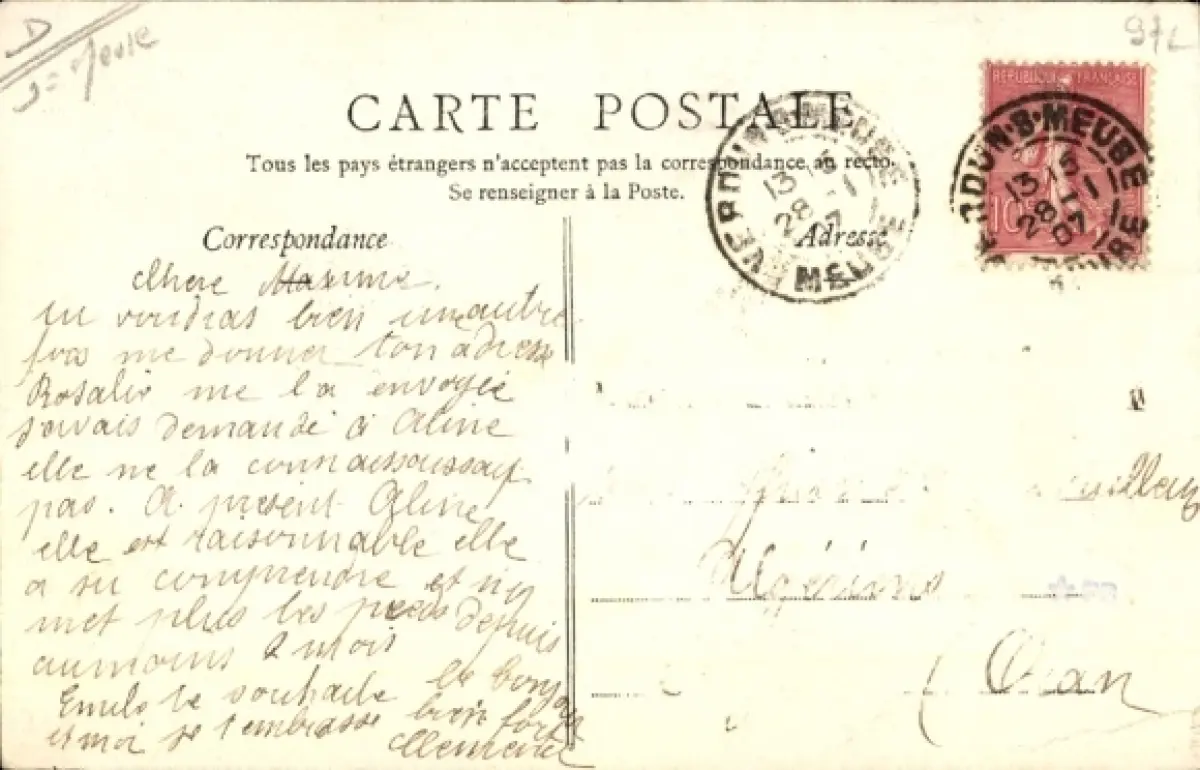 D
Meuse
CARTE POSTALE
Tous les pays étrangers n'acceptent pas la correspondance au recto.
Se renseigner à la Poste.
REPUBLIQUE FRANÇAISE
10
VERDUN-S-MEUSE
13 15
28 -1
07
MEUSE
VERDUN-S-MEUSE
13 15
28 -1
07
MEUSE
Correspondance
Adresse
Chere
tu voudras bien une autre
fois me donner ton adresse
Rosalie me l a envoyée
javais demandé à Aline
elle ne la
pas. A présent Aline
elle est raisonnable elle
a su comprendre et n'y
met plus les pieds depuis
au moins 2 mois
Emile te souhaite le bonjour
et moi je t'embrasse bien fort
Clemence
Oran